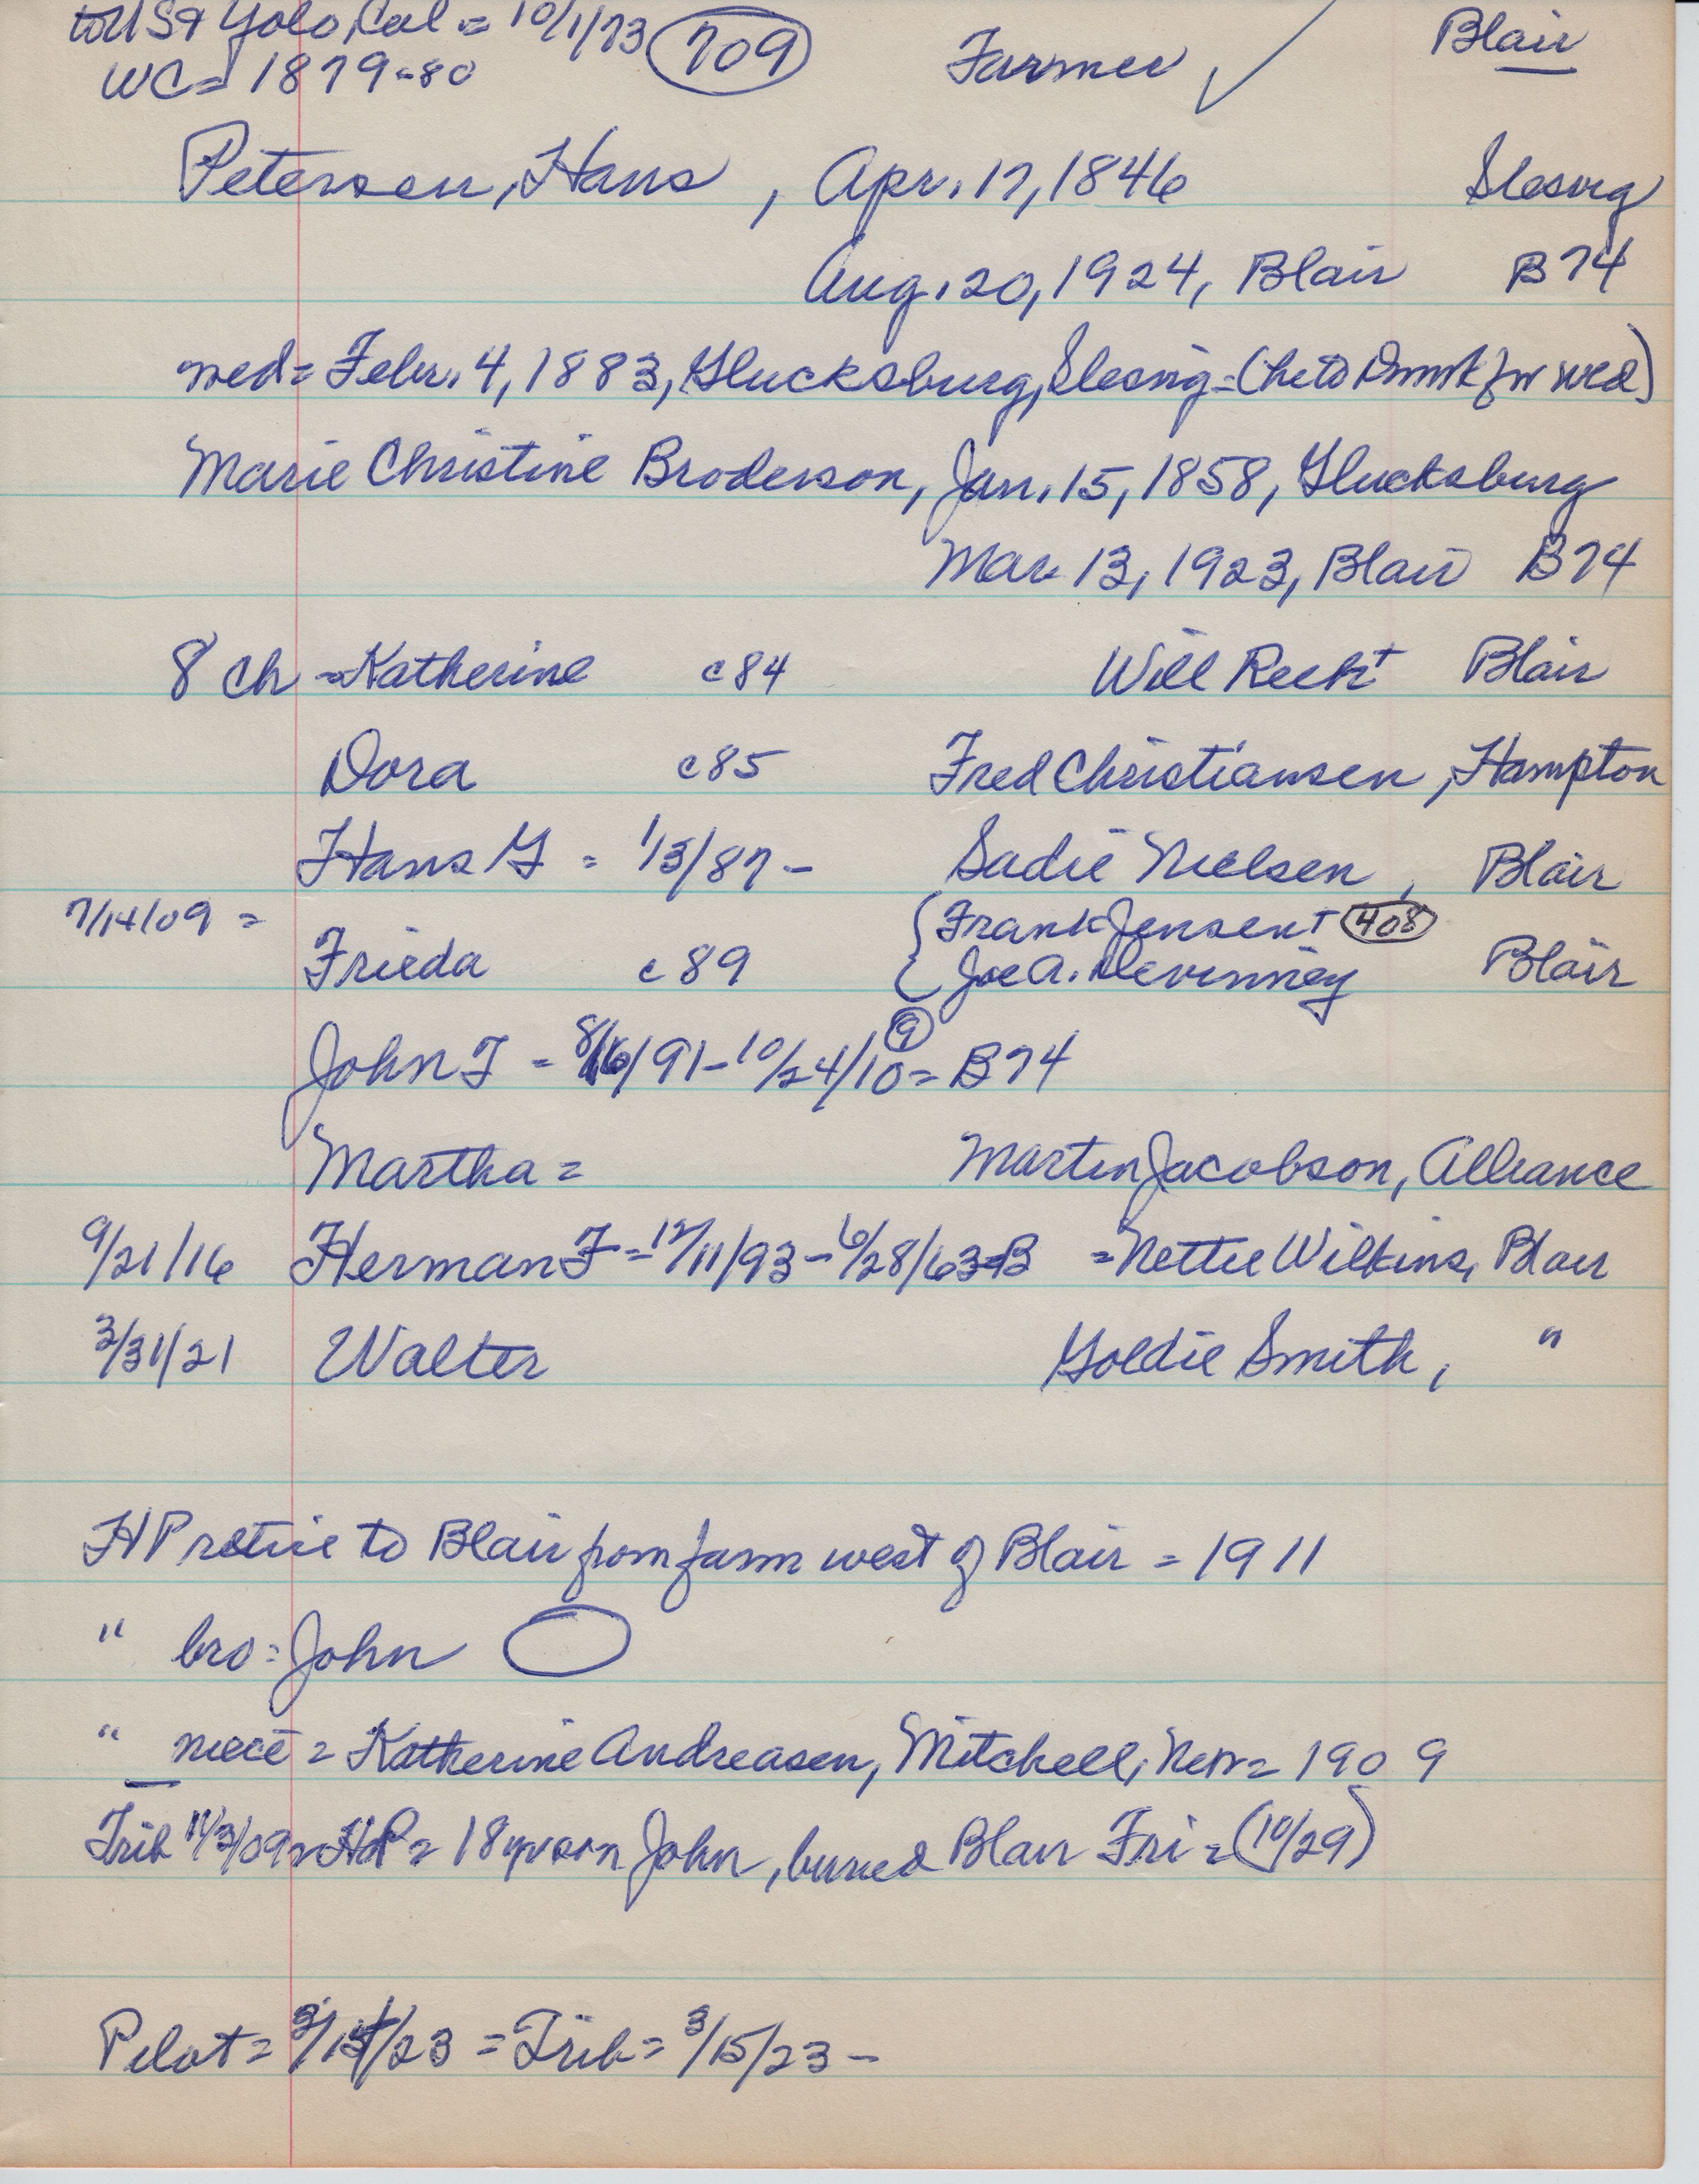 to US & Yolo, Cal = 10/1/73 709 Farmer ✓ Blair
WC = 1879-80
Petersen, Hans , Apr. 17, 1846 Slesvig
Aug. 20, 1924, Blair B74
wed = Febr. 4, 1883, Glucksburg, Slesvig = (he to Dnmk for wed)
Marie Christine Broderson, Jan. 15, 1858, Glucksburg
Mar. 13, 1923, Blair B74
8 Ch = Katherine c84 Will Reckt Blair
Dora c85 Fred Christiansen, Hampton
Hans G = 1/5/87 - Sadie Nielsen, Blair
7/14/09 = Frieda c89 { Frank Jensen + 408
Joe A. Devinney Blair
John F = 8/16/91 - 10/24/10 = B74 9
Martha = Martin Jacobson, Alliance
9/21/16 Herman F = 12/11/93 - 6/28/63 = B = Nettie Wilkins, Blair
3/31/21 Walter Goldie Smith, "
HP retire to Blair from farm west of Blair = 1911
" bro = John
" niece = Katherine Andreasen, Mitchell, Neb = 1909
Trib 11/3/09 = HP = 18 yr son John, buried Blair Fri = (10/29)
Pilot = 3/14/23 = Trib = 3/15/23 -